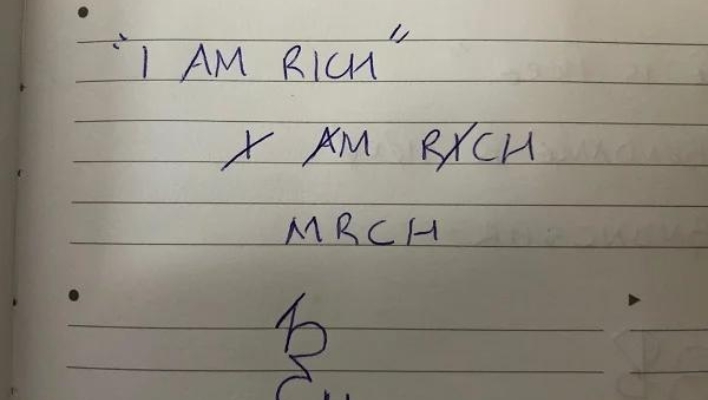 "I AM RICH"
I AM RICH
MRCH